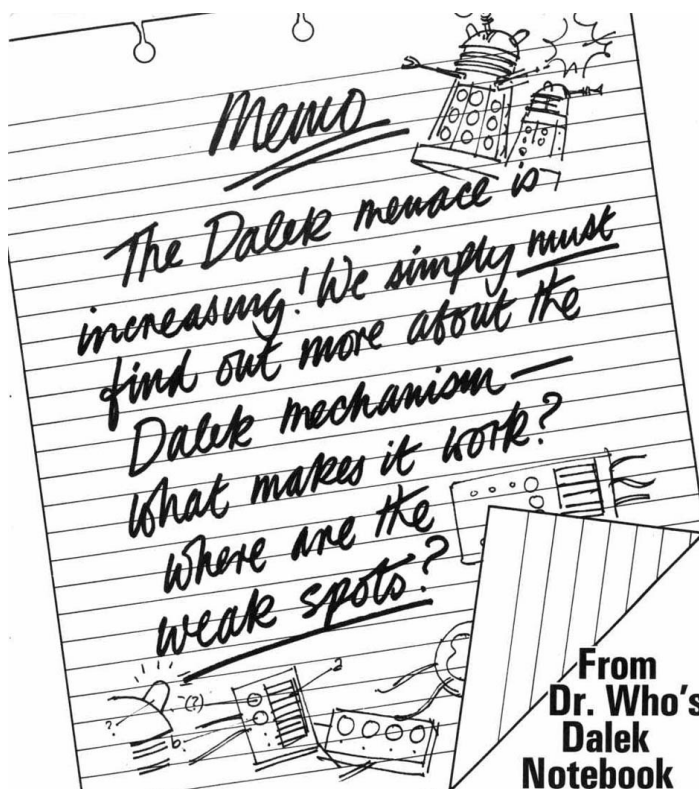 Memo
The Dalek menace is
increasing! We simply must
find out more about the
Dalek mechanism —
What makes it work?
Where are the
weak spots?
? (?) 2
6
From
Dr. Who's
Dalek
Notebook